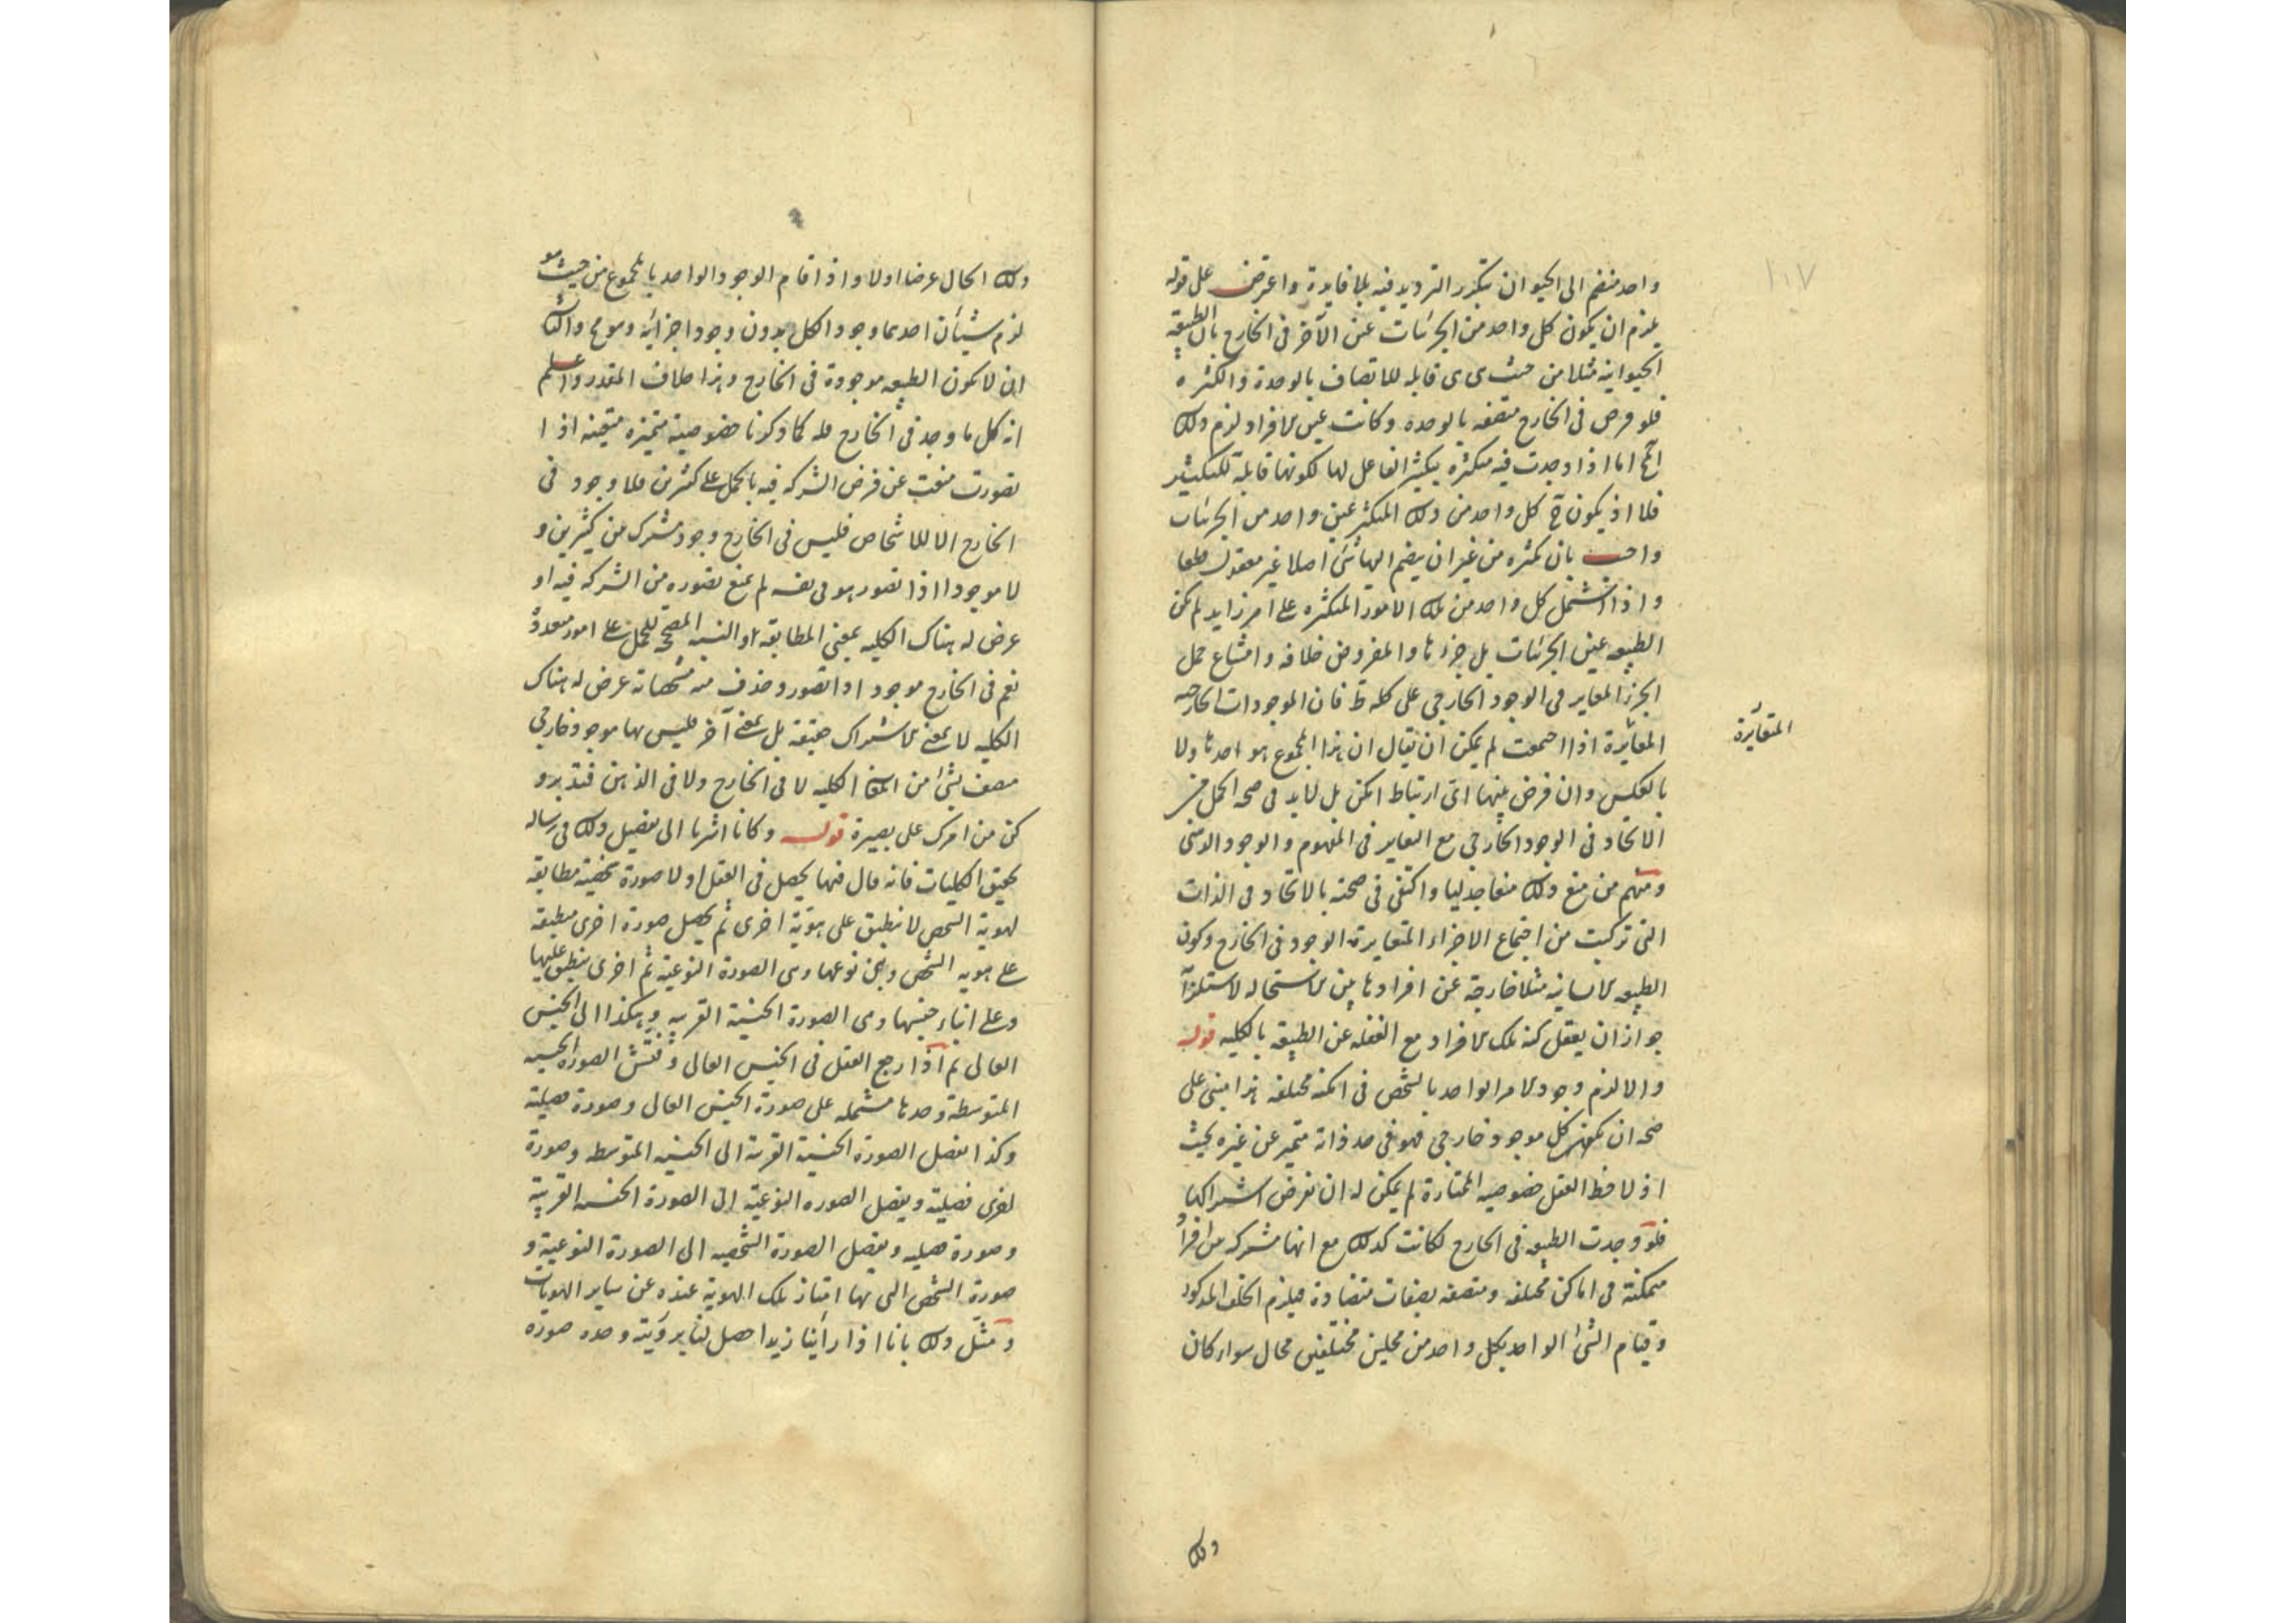 ١٠٧
واحد منضم الى الحيوان تتكرر الترديد فيه بلا فايدة واعترض على قوله
يلزم ان يكون كل واحد من الجزئيات عين الآخر فى الخارج بان الطبيعة
الحيوانية مثلا من حيث هى هى قابلة للاتصاف بالوحدة والكثرة
فلو فرض فى الخارج متصفة بالوحده وكانت عين الافراد لزم ذلك
الخ اما اذا وجدت فيه متكثره بتكثير الفاعل لها لكونها قابلة للتكثير
فلا اذ يكون ح كل واحد من ذلك المتكثر عين واحد من الجزئيات
واجيب بان تكثره من غير ان ينضم اليها شئ اصلا غير معقول قطعا
واذا اشتمل كل واحد من تلك الامور المتكثره على امر زايد لم تكن
الطبيعه عين الجزئيات بل جزءها والمفروض خلافه وامتناع حمل
الجزء المغاير فى الوجود الخارجى على كله ظ فان الموجودات الخارجيه
المغايرة اذا اجتمعت لم يمكن ان يقال ان هذا المجموع هو احدها ولا
المتغايرة
بالعكس وان فرض بينها اى ارتباط امكن بل لابد فى صحة الحمل من
الاتحاد فى الوجود الخارجى مع التغاير فى المفهوم والوجود الذهنى
ومنهم من منع ذلك منعا جدليا واكتفى فى صحته بالاتحاد فى الذات
التى تركبت من اجتماع الاجزاء المتغايرة الوجود فى الخارج وكون
الطبيعه الانسانيه مثلا خارجة عن افرادها بين الاستحاله لاستلزامه
جواز ان يعقل كنه تلك الافراد مع الغفله عن الطبيعة بالكليه قوله
والا لزم وجود الامر الواحد بالشخص فى امكنة مختلفه هذا مبنى على
صحة ان يكون كل موجود خارجى فهو فى حد ذاته متميز عن غيره بحيث
اذ لاحظ العقل خصوصيه الممتازة لم يمكن له ان يفرض اشتراكها
فلو وجدت الطبيعه فى الخارج لكانت كذلك مع انها مشتركه بين افراد
متمكنة فى اماكن مختلفه ومتصفة بصفات متضادة فيلزم الخلف المذكور
وقيام الشئ الواحد بكل واحد من محلين مختلفين محال سواء كان
ذلك
ذلك الحال عرضا اولا واذا قام الوجود الواحد بالمجموع من حيث هو
لزم شيئان احدهما وجود الكل بدون وجود اجزائه وهو مح والثانى
ان لا تكون الطبيعه موجودة فى الخارج وهذا خلاف المقدر واعلم
انه كل ما وجد فى الخارج فله كما ذكرنا خصوصية متميزه متعينه اذا
تصورت منعت عن فرض الشركه فيه بالحمل على كثيرين فلا وجود فى
الخارج الا للاشخاص فليس فى الخارج وجود مشترك بين كثيرين و
لا موجود اذا تصور هو فى نفسه لم يمنع تصوره من الشركه فيه او
عرض له هناك الكليه بمعنى المطابقة او النسبه المصححة للحمل على امور متعددة
نعم فى الخارج موجود اذا تصور وحذف منه مشخصاته عرض له هناك
الكليه لا بمعنى الاشتراك حقيقة بل بمعنى آخر فليس لها موجود خارجى
متصف بشئ من المعانى الكليه لا فى الخارج ولا فى الذهن فتدبر و
كن من امرك على بصيرة قوله وكانا اشرنا الى تفصيل ذلك فى رساله
تحقيق الكليات فانه قال فيها يحصل فى العقل اولا صورة شخصية مطابقة
لهوية الشخص لا تنطبق على هوية اخرى ثم يحصل صورة اخرى منطبقة
على هويه الشخص وبين نوعها وهى الصورة النوعية ثم اخرى ينطبق عليها
وعلى ابناء جنسها وهى الصورة الجنسية القريبه وهكذا الى الجنس
العالى ثم اذا رجع العقل فى الجنس العالى وفتش الصورة الجنسيه
المتوسطة وجدها مشتمله على صورة الجنس العالى وصورة فصلية
وكذا تفصل الصورة الجنسية القريبة الى الجنسيه المتوسطه وصورة
اخرى فصلية ويفصل الصوره النوعية الى الصورة الجنسيه القريبة
وصورة فصليه ويفصل الصورة الشخصيه الى الصورة النوعيه و
صورة الشخص التى بها امتاز تلك الهوية عنده عن ساير الهويات
ومثل ذلك بانا اذا رأينا زيدا حصل لنا برؤيته وحده صورة